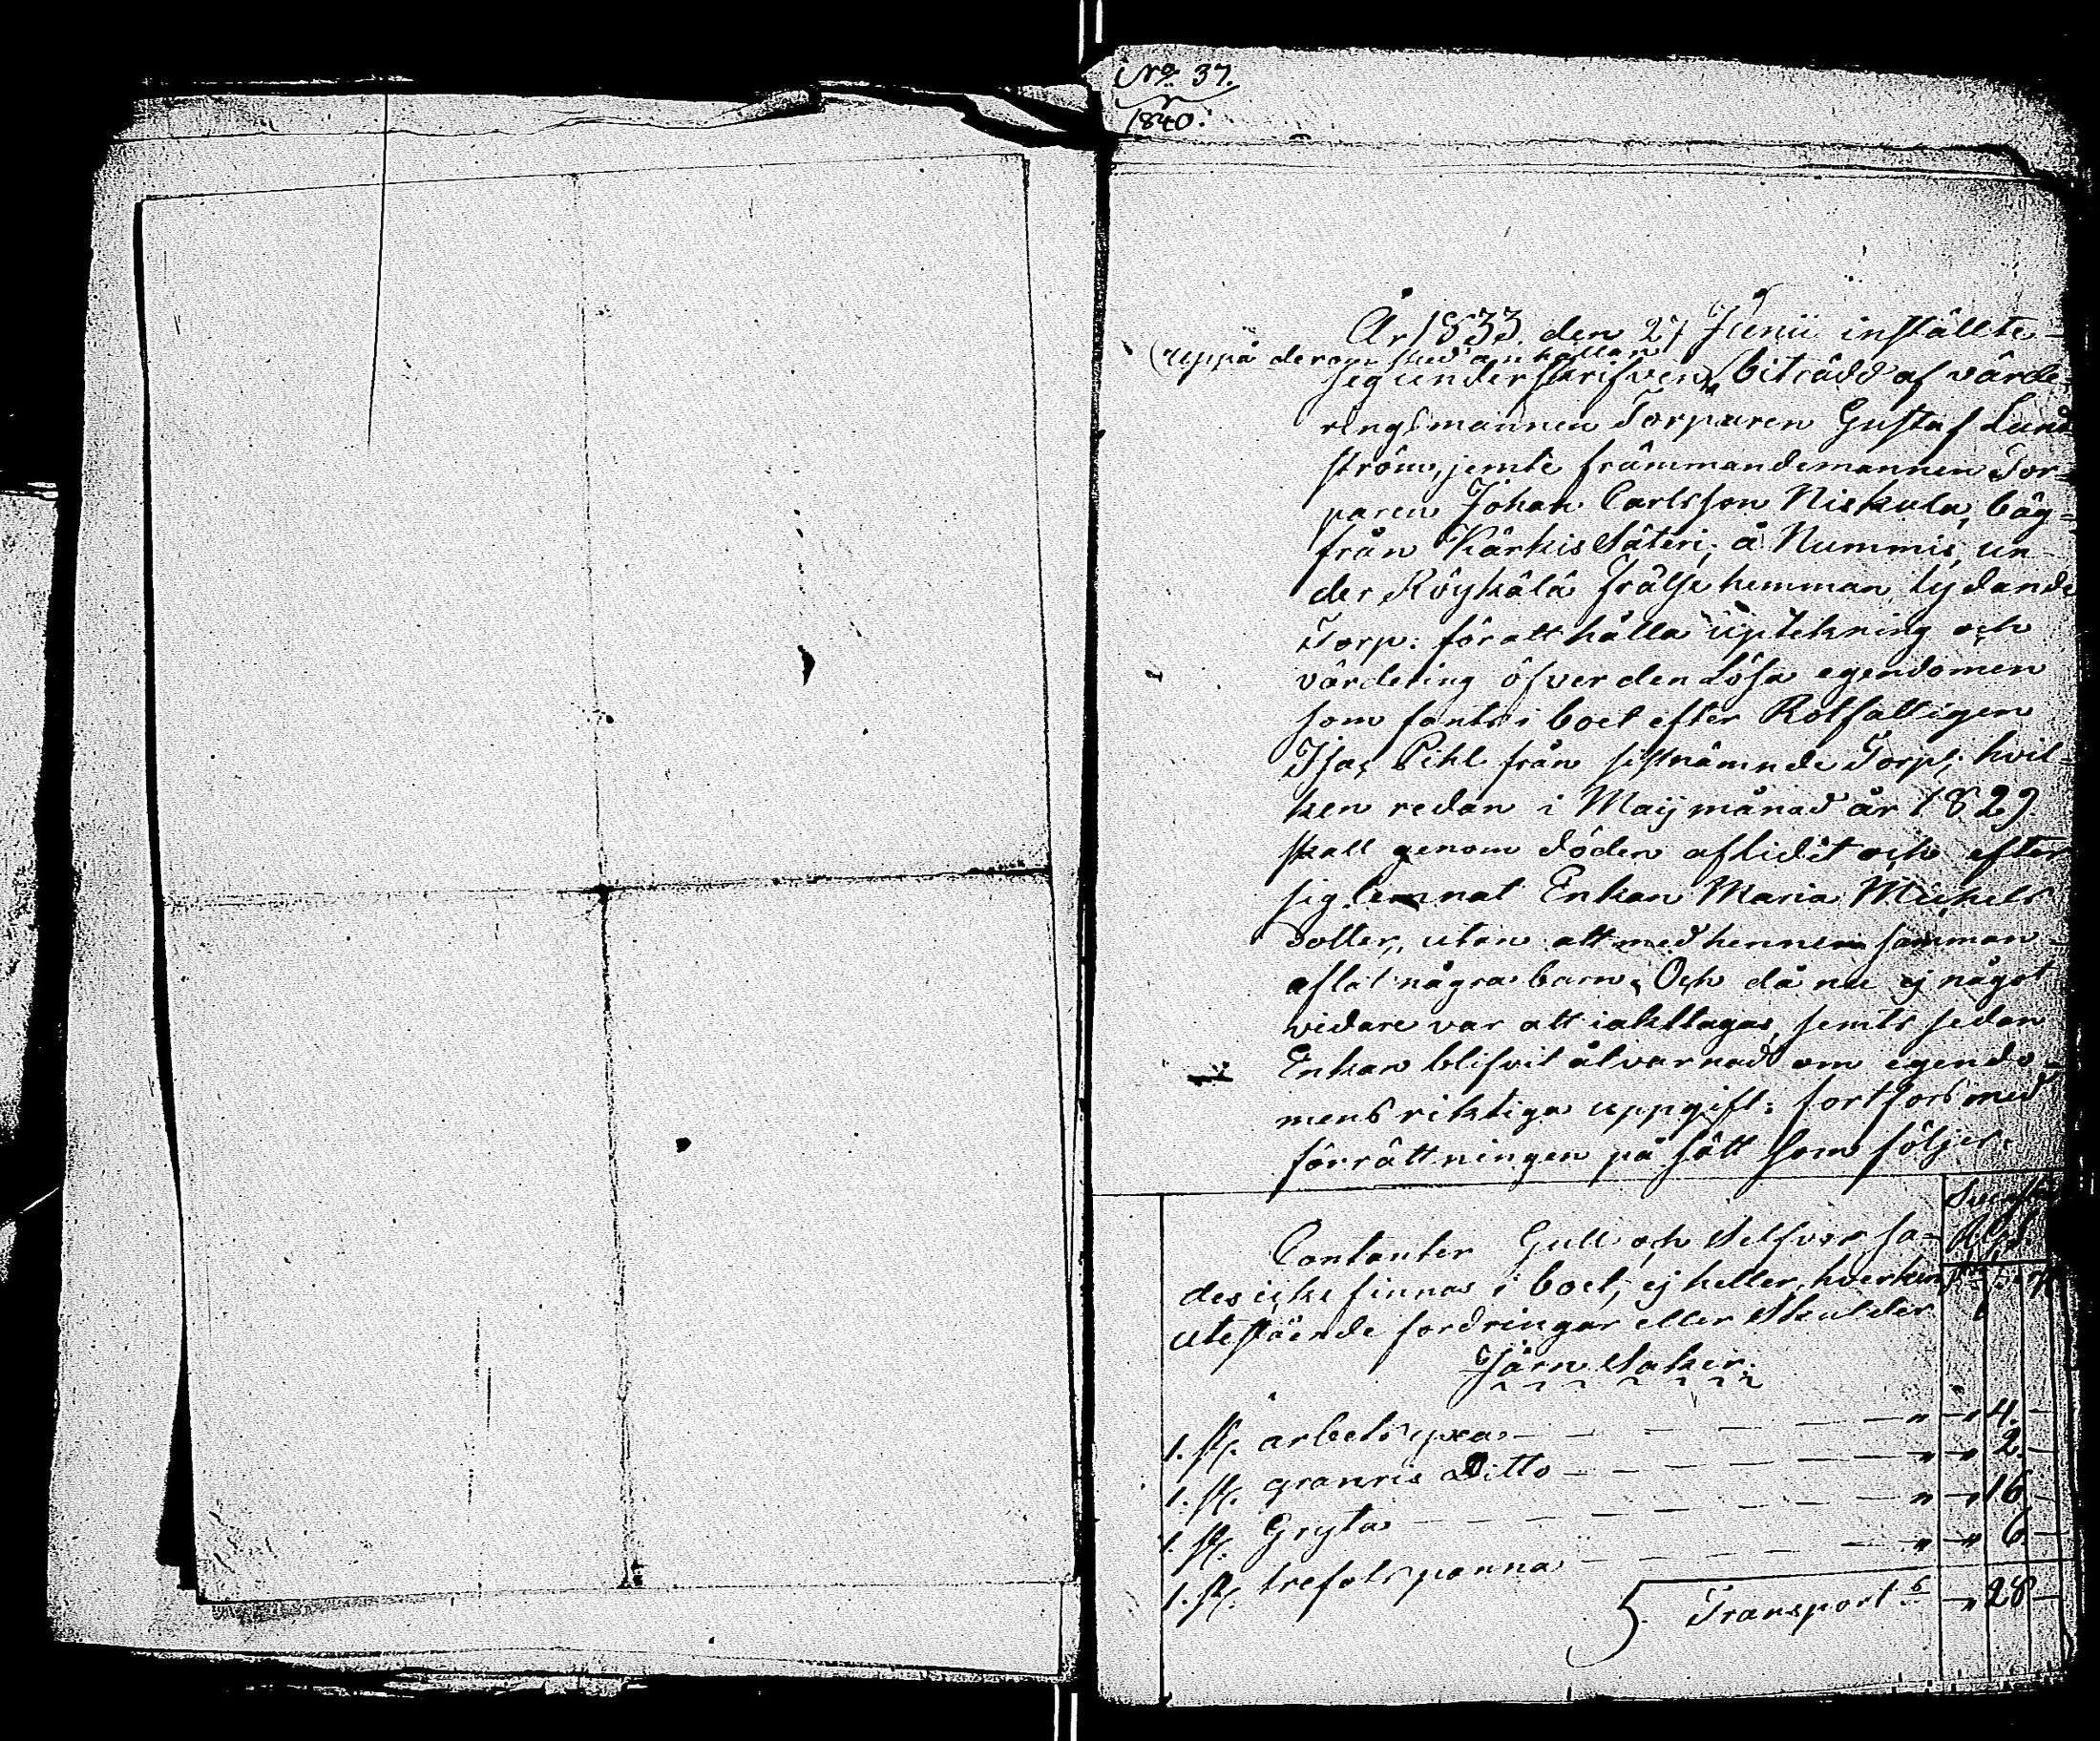 No. 37.
1840.
År 1833. den 27 Junii instälte
(uppå derom skedd anhållan)
sig underskrifven, biträdd af värde=
ringsmannen Torparen Gustaf Lund
ström, jemte främmandemannen Tor=
paren Johan Carlsson Niskula, båg=
från Kärkis Säteri, å Nummis un
der Röykälä frälse hemman lydande
Torp: för att hålla uptekning och
värdering öfver den Lösa egendomen
som fants i boet efter Rotfattigen
Isac Pihl från sistnämnde Torp; hvil=
ken redan i Maij månad år 1829.
skall genom döden aflidit och efter
sig lemnat Enkan Maria Michels
dotter, utan att med henne samman
aflat några barn. Och då nu ej något
vidare var att iakttagas, jemte sedan
Enkan blifvit åtvarnad om egendo
mens riktiga uppgift; fortfors med
förrättningen på sätt som följer.
Contanter Gull och Silfver sa=
des icke finnas i boet, ej heller hvarken
utestående fordringar eller Skulder
Järn Saker.
1. st. arbets yxa — — — " — " 4. —
1. st. granris Ditto — — — " — " 2. —
1. st. Gryta — — — " — " 16 —
1. st. trefots panna — — — " — " 6. —
Transport — " 28 —